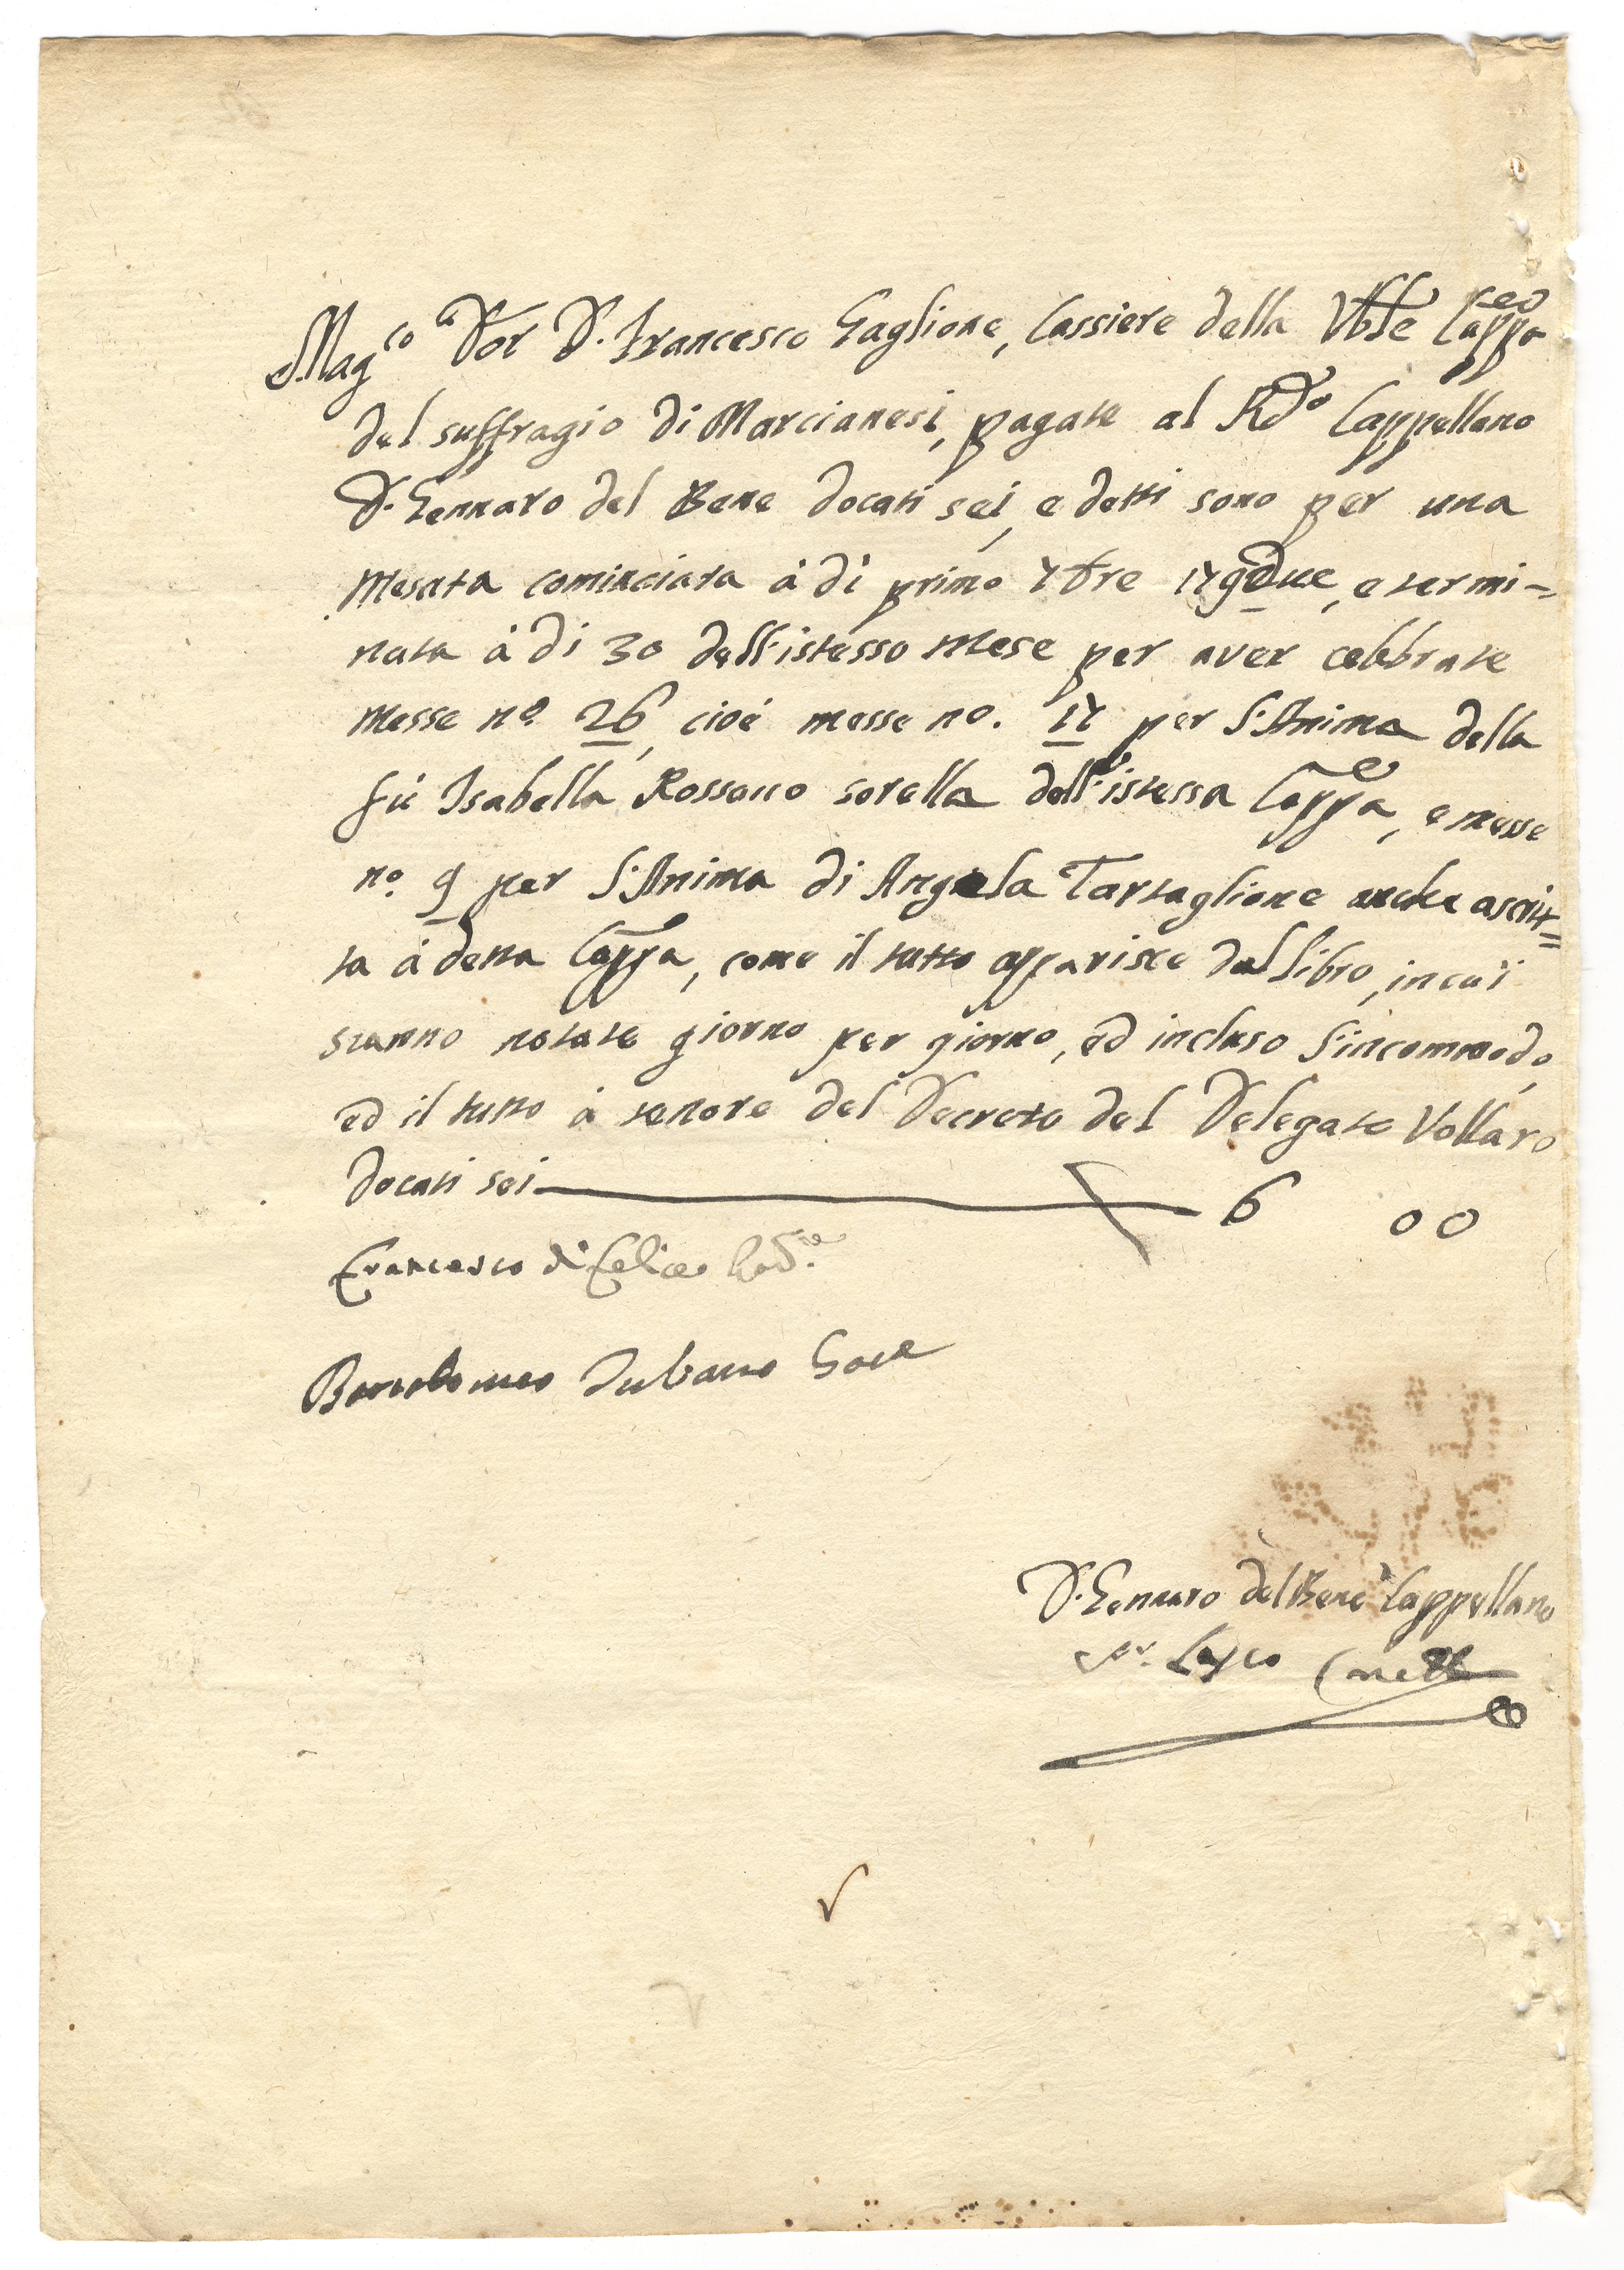 Mag.co Dor D. Francesco Gaglione, Cassiere della Vble Cappa
del suffragio di Marcianesi, pagate al Rdo Cappellano
D. Gennaro del Bene docati sei, e detti sono per una
Mesata cominciata à di primo 7bre 17909due, e termi=
nata à di 30 dell'istesso Mese per aver celebrate
Messe no. 26, cioè messe no. 17 per l'Anima della
fù Isabella Rossano sorella dell'istessa Cappa, e messe
no. 9 per l'Anima di Angela Tartaglione anche ascrit=
ta à detta Cappa, come il tutto apparisce dal libro, in cui
stanno notate giorno per giorno, ed incluso l'incommodo,
ed il tutto à tenore del Decreto del Delegato Vollaro
docati sei 6 00
Francesco di Felice
Bartolomeo
D. Gennaro del Bene Cappellano